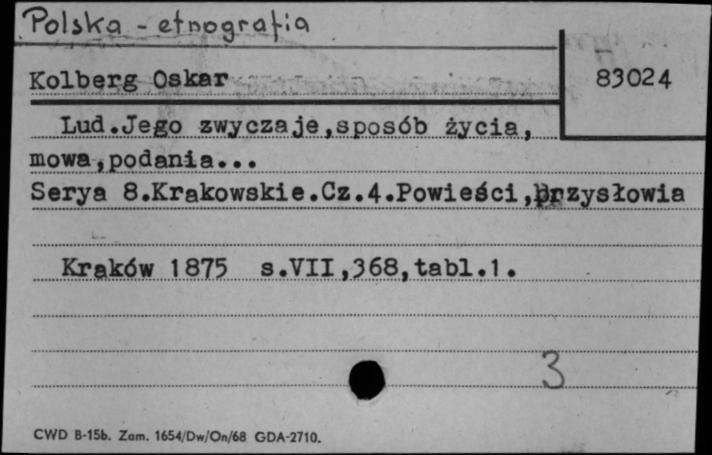 Polska - etnografia
Kolberg Oskar
83024
Lud.Jego zwyczaje,sposób życia,
mowa,podania...
Serya 8.Krakowskie.Cz.4.Powieści,przysłowia
Kraków 1875 s.VII,368,tabl.1.
3
CWD B-15b. Zam. 1654/Dw/On/68 GDA-2710.